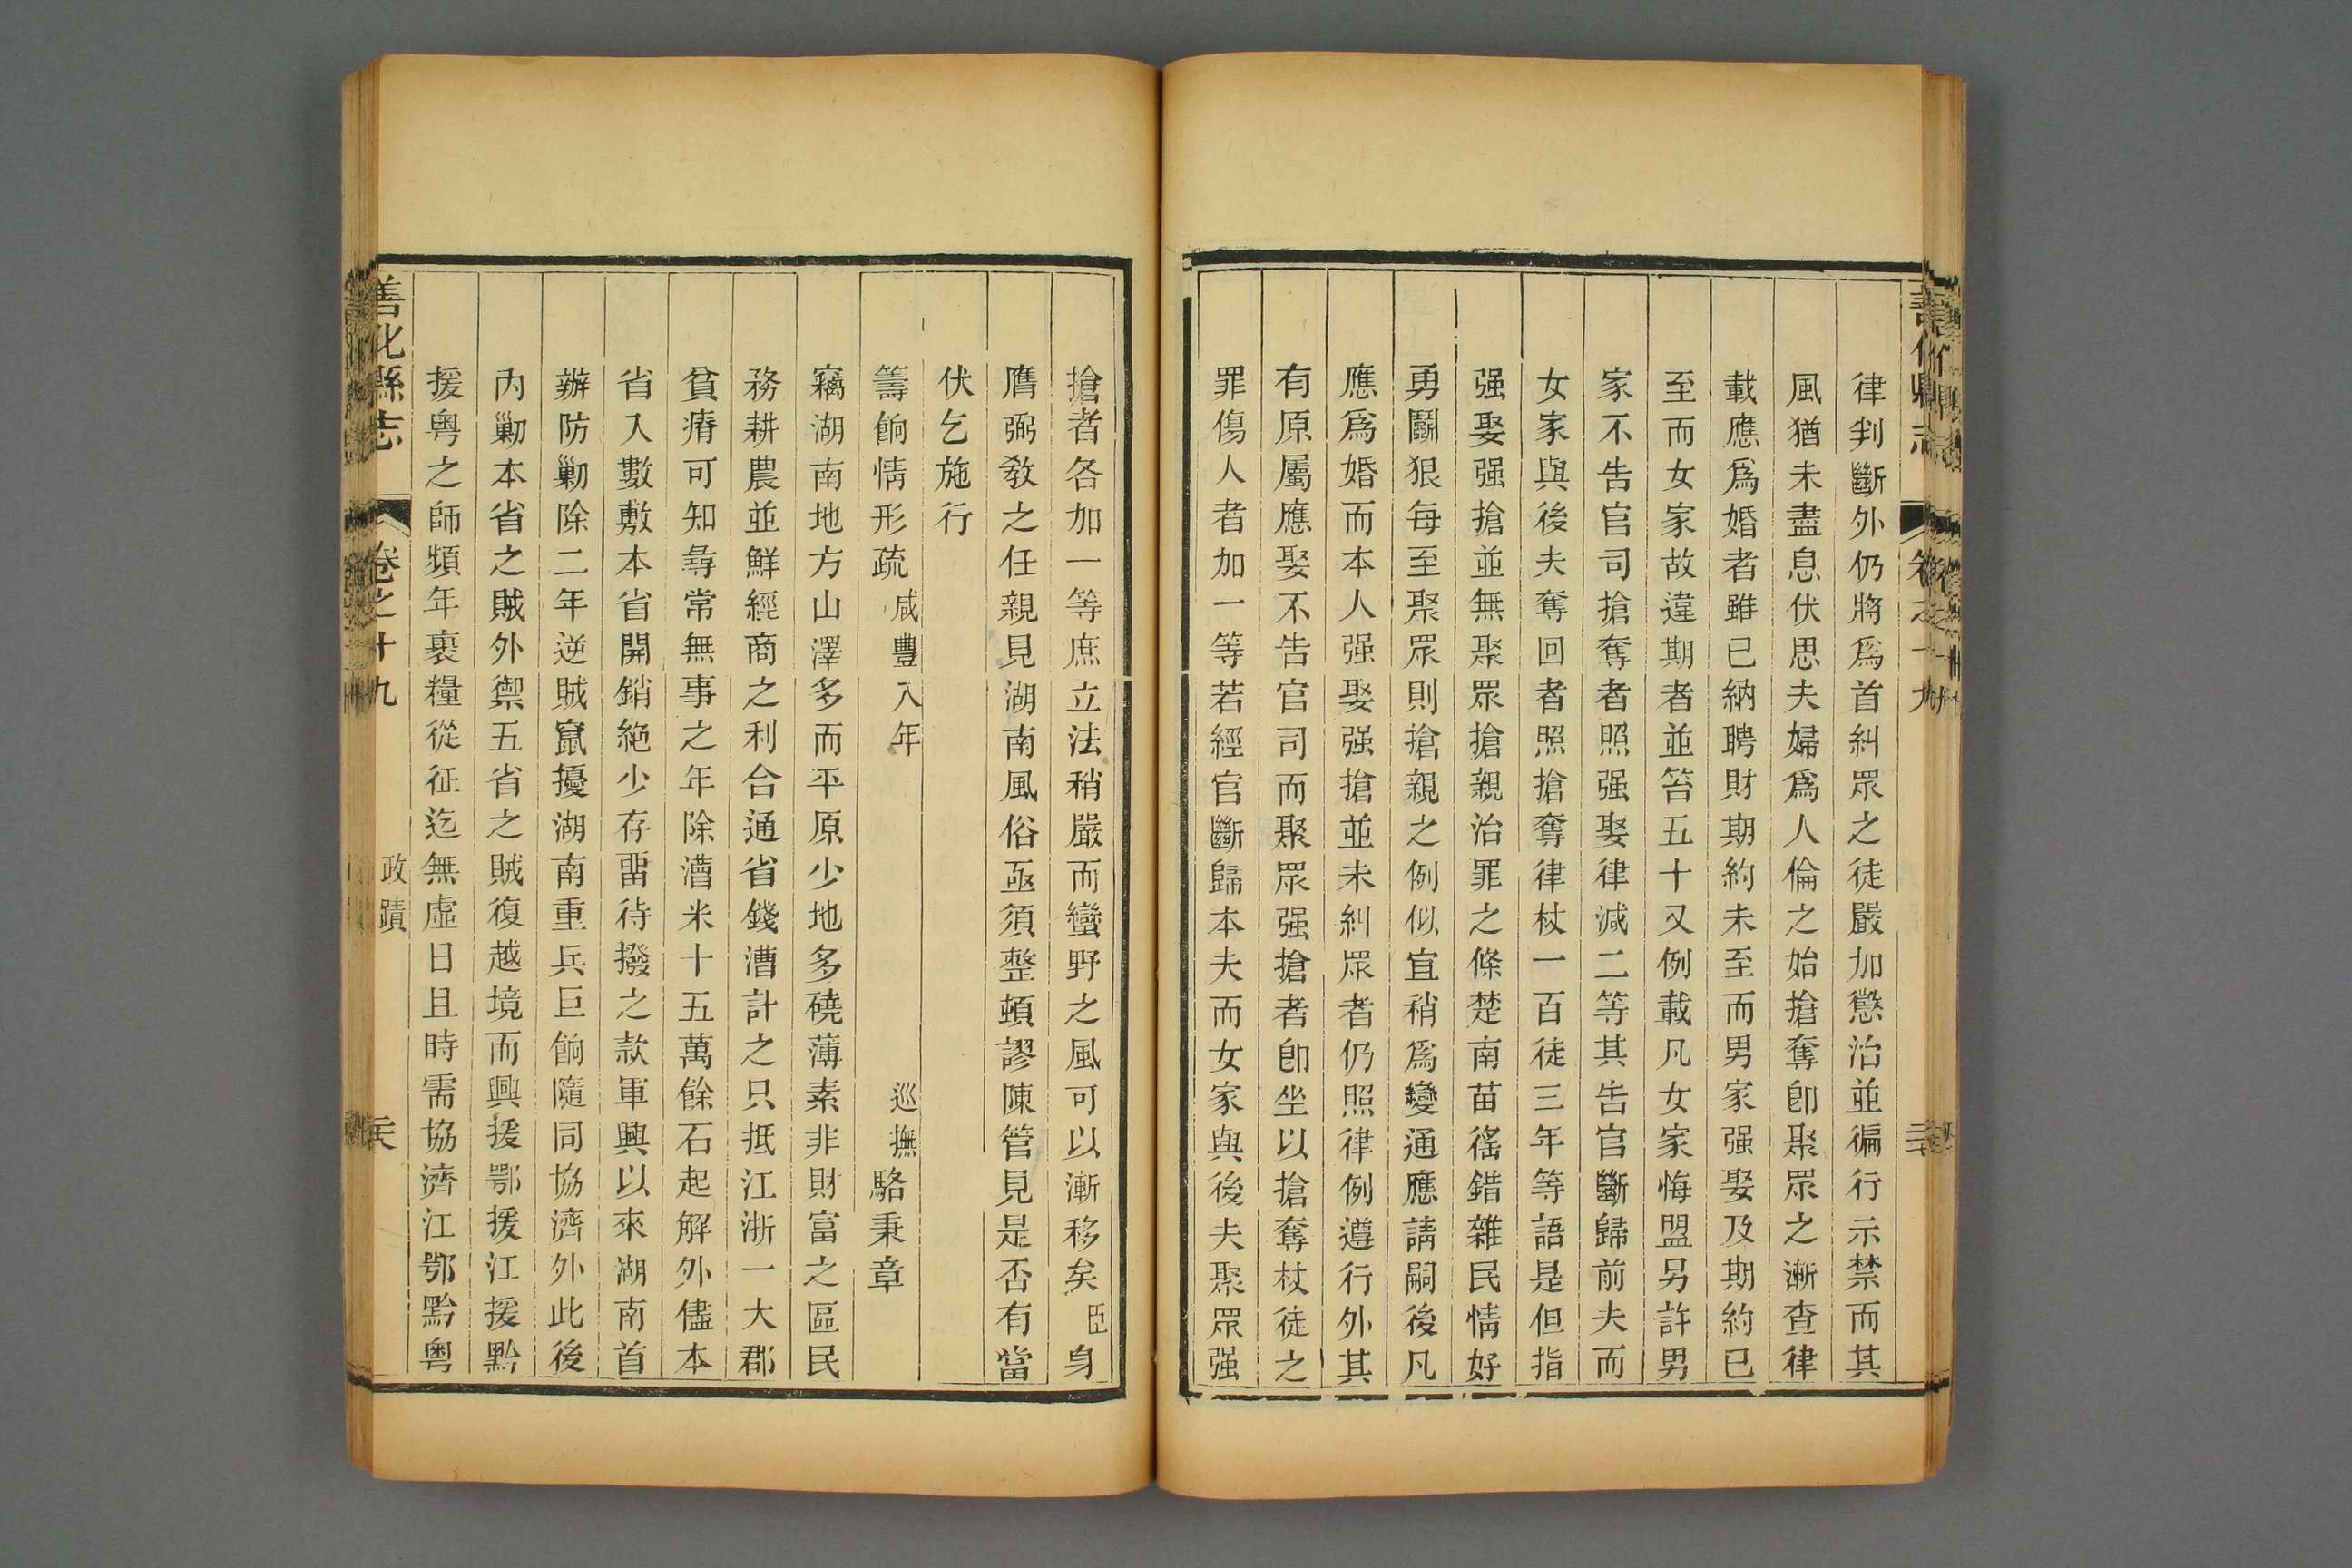 律判斷外仍將爲首糾眾之徒嚴加懲治並徧行示禁而其
風猶未盡息伏思夫婦爲人倫之始搶奪卽聚眾之漸查律
載應爲婚者雖已納聘財期約未至而男家强娶及期約已
至而女家故違期者並笞五十又例載凡女家悔盟另許男
家不告官司搶奪者照强娶律減二等其告官斷歸前夫而
女家與後夫奪回者照搶奪律杖一百徒三年等語是但指
强娶强搶並無聚眾搶親治罪之條楚南苗徭錯雜民情好
勇鬭狠每至聚眾則搶親之例似宜稍爲變通應請嗣後凡
應爲婚而本人强娶强搶並未糾眾者仍照律例遵行外其
有原屬應娶不告官司而聚眾强搶者卽坐以搶奪杖徒之
罪傷人者加一等若經官斷歸本夫而女家與後夫聚眾强
搶者各加一等庶立法稍嚴而蠻野之風可以漸移矣臣身
膺弼敎之任親見湖南風俗亟須整頓謬陳管見是否有當
伏乞施行
籌餉情形疏 咸豐八年 巡撫 駱秉章
竊湖南地方山澤多而平原少地多磽薄素非財富之區民
務耕農並鮮經商之利合通省錢漕計之只抵江浙一大郡
貧瘠可知尋常無事之年除漕米十五萬餘石起解外儘本
省入數敷本省開銷絶少存畱待撥之款軍興以來湖南首
辦防勦除二年逆賊竄擾湖南重兵巨餉隨同協濟外此後
內勦本省之賊外禦五省之賊復越境而興援鄂援江援黔
援粤之師頻年裹糧從征迄無虛日且時需協濟江鄂黔粤
善化縣志 卷之十九 政蹟